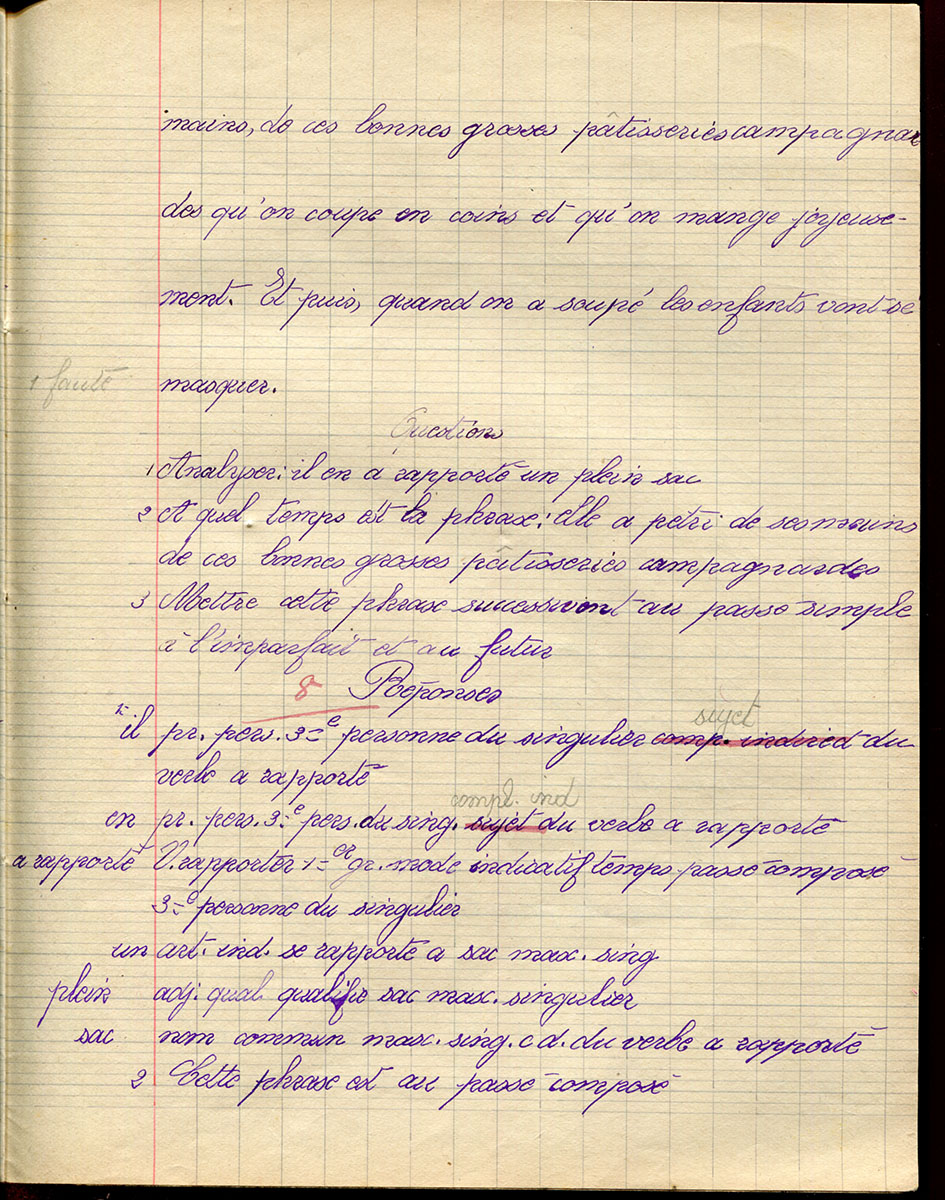 mains, de ces bonnes grosses pâtisseries campagnar
des qu'on coupe en coins et qu'on mange joyeuse-
ment. Et puis, quand on a soupé les enfants vont se
1 faute masquer.
Questions
1 Analyser: il en a rapporté un plein sac
2 A quel temps est la phrase: elle a pétri de ses mains
de ces bonnes grosses pâtisseries campagnardes
3 Mettre cette phrase successivent au passé simple
à l'imparfait et au futur
8 Réponses
sujet
1 il pr. pers. 3e personne du singulier comp. indirect du
verbe a rapporté
compl. ind
en pr. pers. 3e pers. du sing. sujet du verbe a rapporté
a rapporté V. rapporter 1er gr. mode indicatif temps passé composé
3e personne du singulier
un art. ind. se rapporte a sac mas. sing
plein adj. qual. qualifie sac masc. singulier
sac nom commun masc. sing. c d. du verbe a rapporté
2 Cette phrase est au passé composé